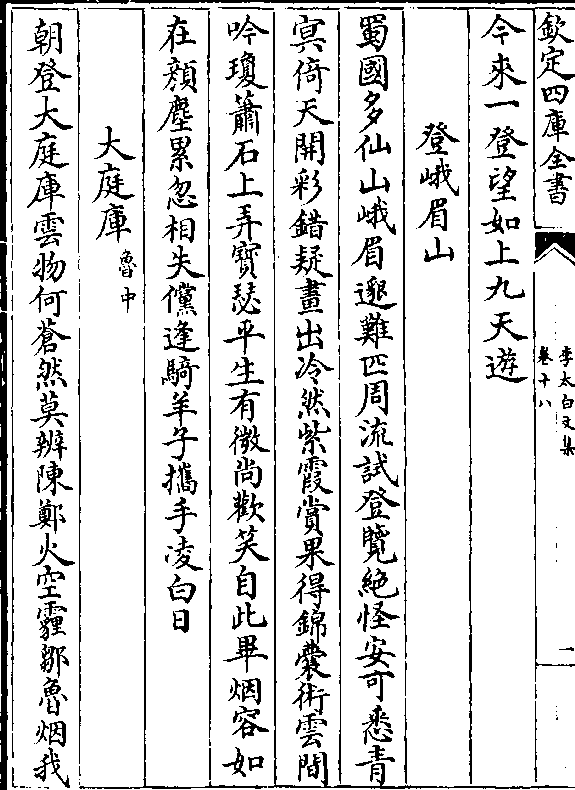 欽定四庫全書
李太白文集
卷十八
一
今來一登望如上九天遊
登峨眉山
蜀國多仙山峨眉邈難匹周流試登覽絶怪安可悉青
㝠倚天開彩錯疑畫出冷然紫霞賞果得錦囊術雲間
吟瓊簫石上弄寶瑟平生有微尚歡笑自此畢烟容如
在顔塵累忽相失儻逢騎羊子攜手凌白日
大庭庫魯中
朝登大庭庫雲物何蒼然莫辨陳鄭火空霾鄒魯烟我